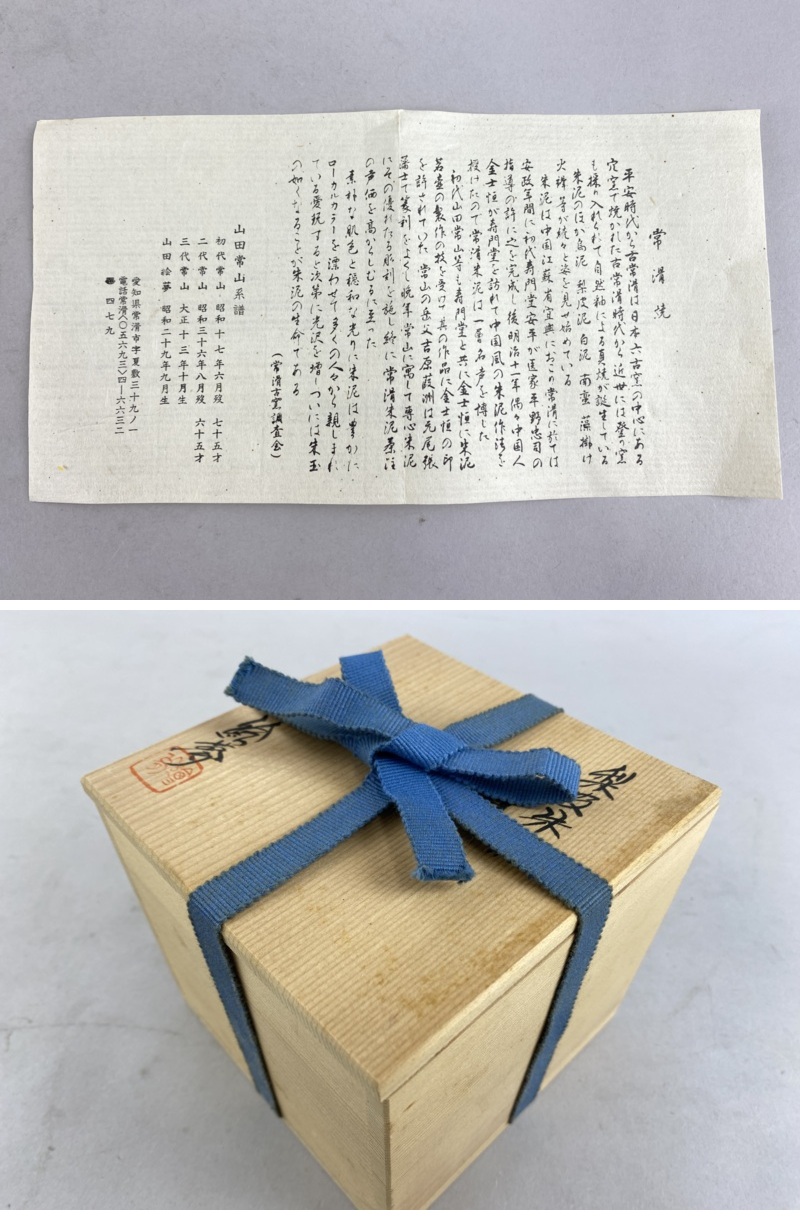 常滑焼
平安時代から古常滑は日本六古窯の中心にある
穴窯で焼かれた古常滑時代から近世には登り窯
も採り入れられて自然釉による真焼が誕生している
朱泥のほか烏泥 梨皮泥 白泥 南蛮 藻掛け
火襷等が続々と姿を見せ始めている
朱泥は中国江蘇省宜興におこり常滑に於ては
安政年間に初代寿門堂安平が医家平野忠司の
指導の許に之を完成し後明治十一年偶々中国人
金士恒が寿門堂を訪れて中国風の朱泥作法を
授けたので常滑朱泥は一審名声を博した
初代山田常山等も寿門堂と共に金士恒に朱泥
茗壺の製作の技を受けて其の作品に金士恒の印
を許されていた 常山の岳父吉原葭洲は元尾張
藩士で篆刻をよくし晩年常山に寓して専心朱泥
にその優れたる彫刻を施し終に常滑朱泥茶注
の声価を高からしむるに至った
素朴な肌色と穏和な光り朱泥は豊かに
ローカルカラーを漂わせて多くの人々から親しまれ
ている愛玩すると次第に光沢を増しついには朱玉
の如くなることが朱泥の生命である
(常滑古窯調査会)
山田常山系譜
初代常山 昭和十七年六月歿 七十五才
二代常山 昭和三十六年八月歿 六十五才
三代常山 大正十三年十月生
山田絵夢 昭和二十九年九月生
愛知県常滑市字夏敷三十九ノ一
電話常滑〈〇五六九三〉四―六六三二
四七九
梨皮朱
絵夢